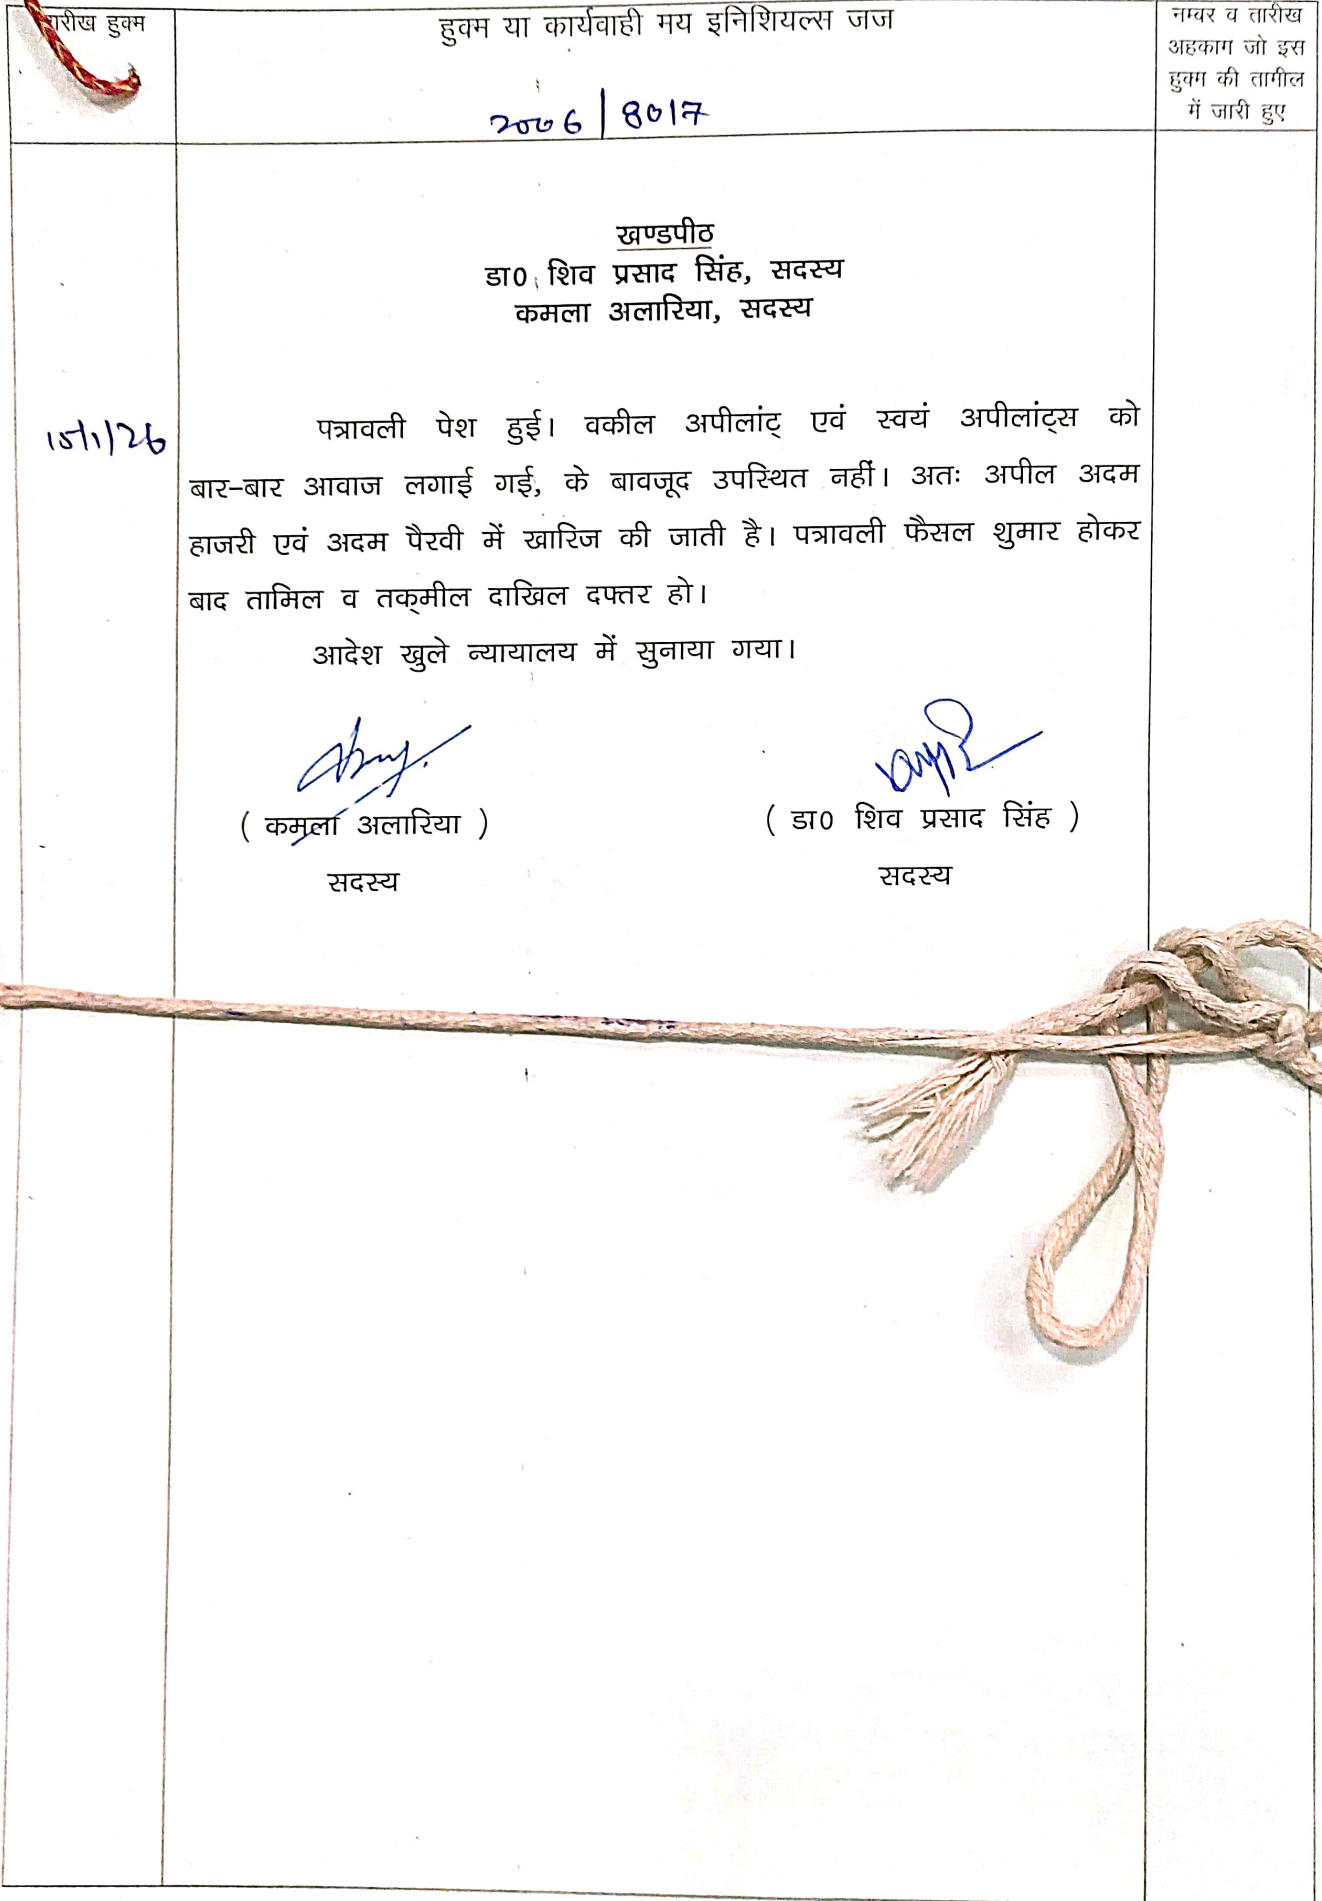 तारीख हुक्म
हुक्म या कार्यवाही मय इनिशियल्स जज
नम्बर व तारीख
अहकाम जो इस
हुक्म की तामील
में जारी हुए
2006/8017
खण्डपीठ
डा0 शिव प्रसाद सिंह, सदस्य
कमला अलारिया, सदस्य
15/1/26
पत्रावली पेश हुई। वकील अपीलांट् एवं स्वयं अपीलांट्स को
बार-बार आवाज लगाई गई, के बावजूद उपस्थित नहीं। अतः अपील अदम
हाजरी एवं अदम पैरवी में खारिज की जाती है। पत्रावली फैसल शुमार होकर
बाद तामिल व तक्मील दाखिल दफ्तर हो।
आदेश खुले न्यायालय में सुनाया गया।
( कमला अलारिया )
( डा0 शिव प्रसाद सिंह )
सदस्य
सदस्य